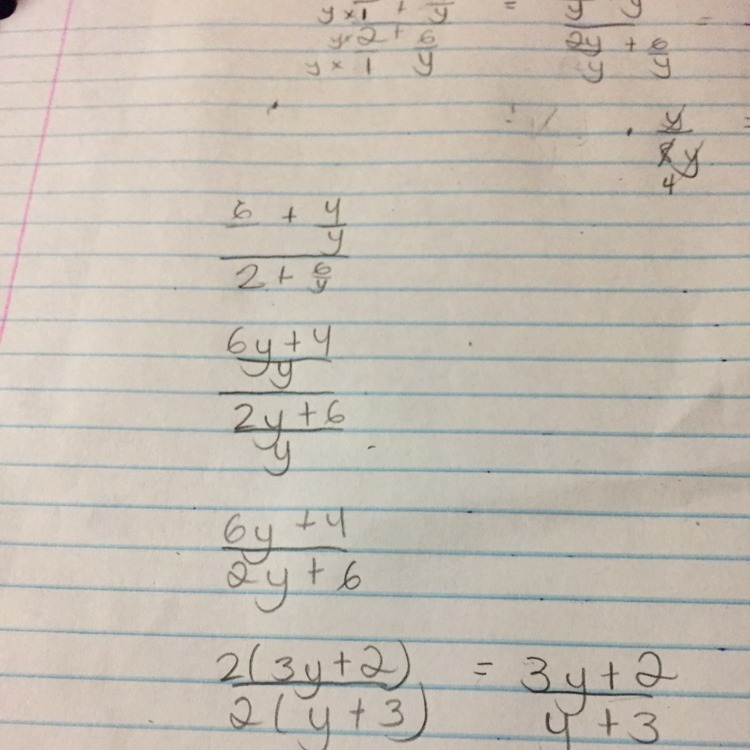 y×1 + y = y y =
y×2 + 6 2y + 6
y×1 y y y
y
8y
4
6 + 4
y
2 + 6
y
6y+4
y
2y+6
y
6y+4
2y+6
2(3y+2) = 3y+2
2(y+3) y+3